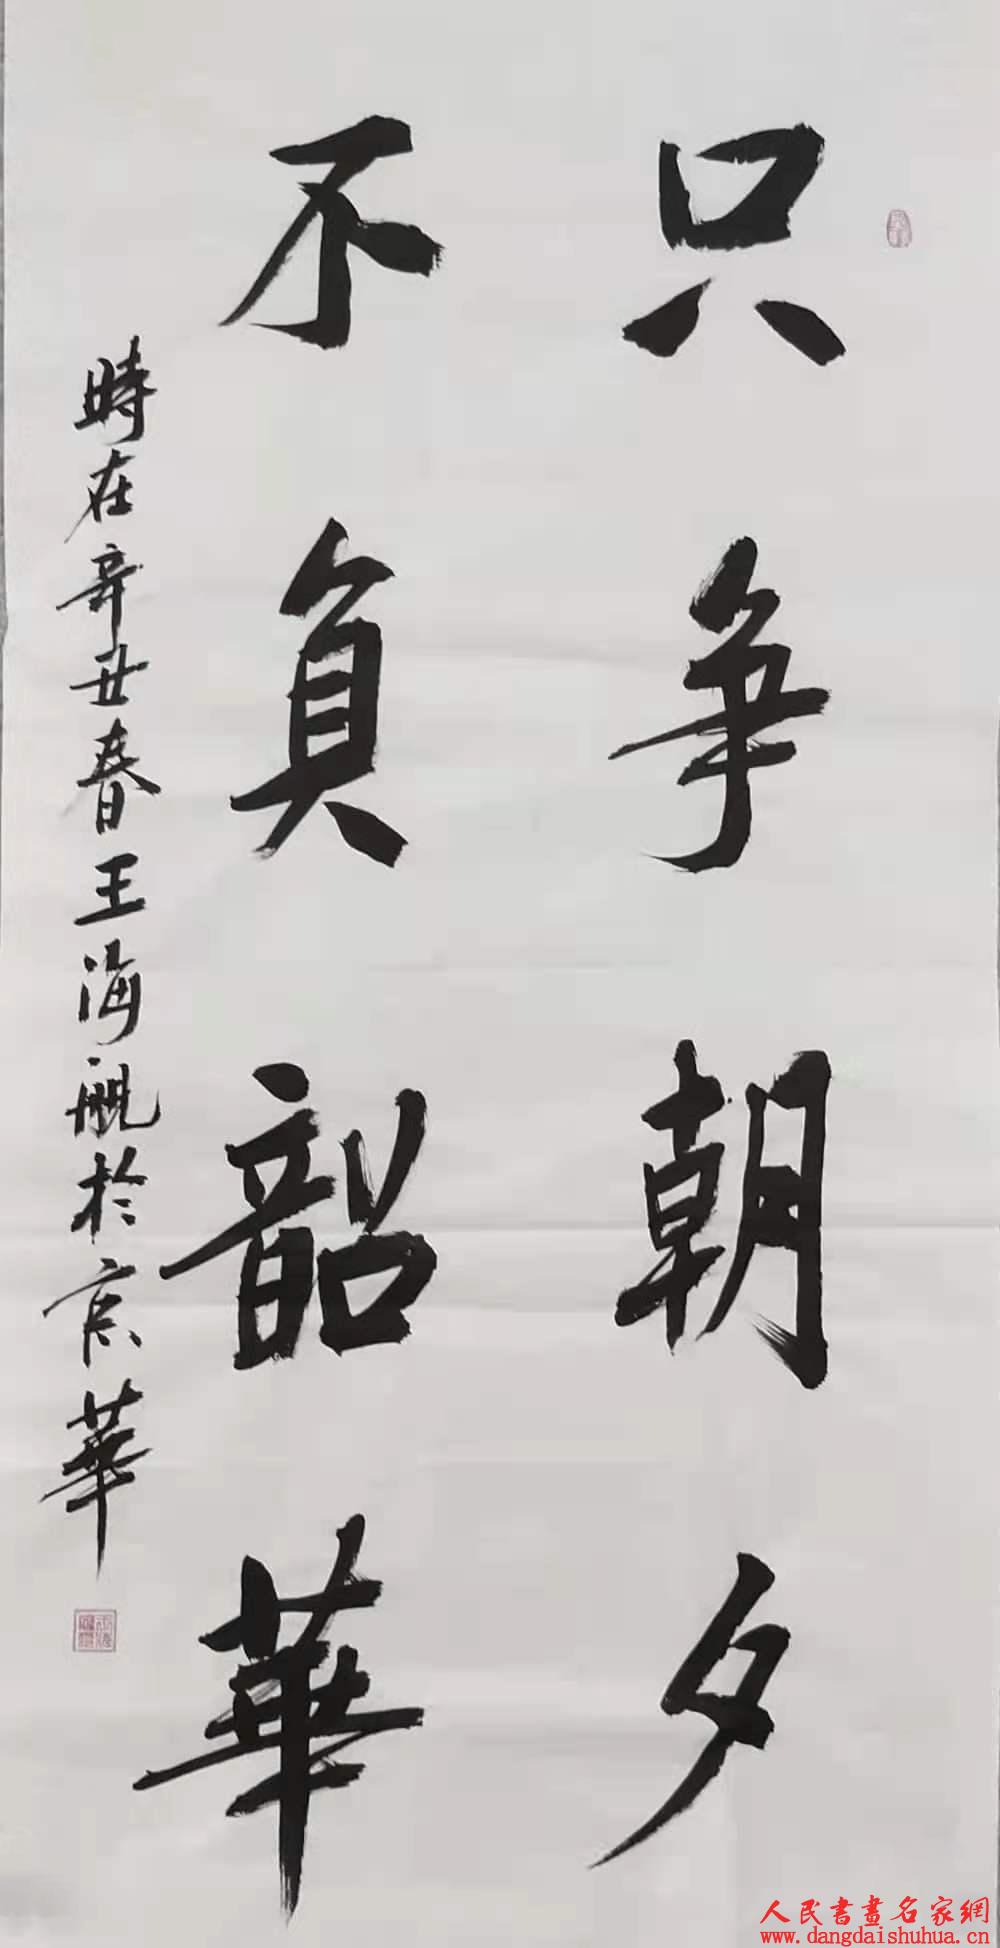 只争朝夕
不負韶華
時在辛丑春王海舰於京華
人民書畫名家網
www.dangdaishuhua.cn